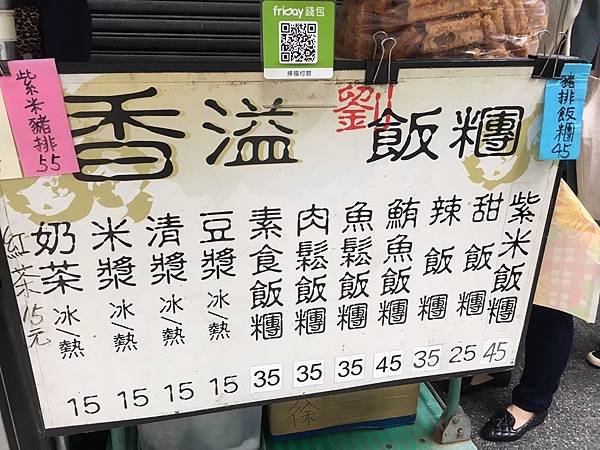 friDay 錢包
掃描付款
紫米豬排55
豬排飯糰45
劉
香溢 飯糰
紫米飯糰 45
甜飯糰 25
辣飯糰 35
鮪魚飯糰 45
魚鬆飯糰 35
肉鬆飯糰 35
素食飯糰 35
豆漿 冰/熱 15
清漿 冰/熱 15
米漿 冰/熱 15
奶茶 冰/熱 15
紅茶15元
徐